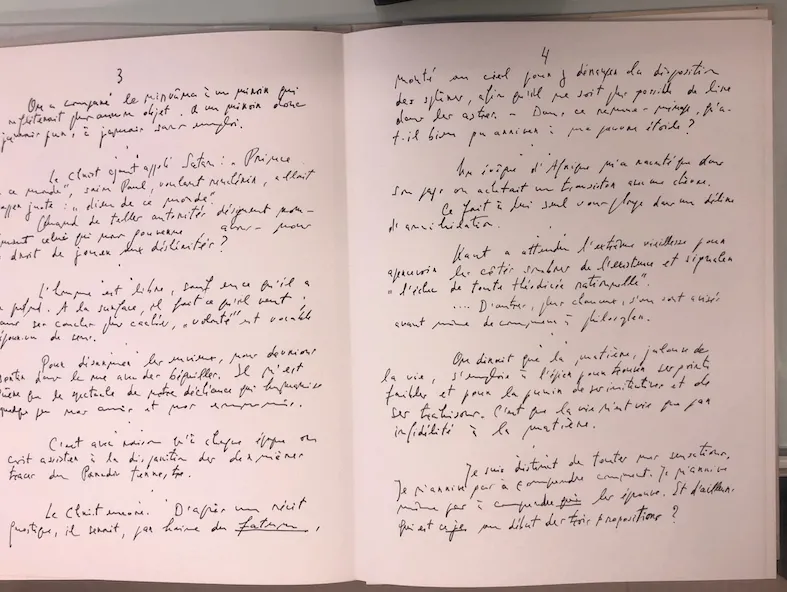 3
On a comparé le nirvâna à un miroir qui
reflèterait plus aucun objet. A un miroir donc
jamais pur, à jamais sans emploi.
Le Christ ayant appelé Satan : „ Prince
ce monde", saint Paul, voulant renchérir, allait
juste : „ dieu de ce monde."
Quand de telles autorités désignent nom-
celui qui nous gouverne avons-nous
droit de jouer aux déshérités ?
L'homme est libre, sauf en ce qu'il a
profond. A la surface, il fait ce qu'il veut ;
ses couches plus cachées, „volonté" est vocable
de sens.
Pour désarmer les envieux, nous devrions
dans la rue avec des béquilles. Il n'est
que le spectacle de notre déchéance qui humanise
peu nos amis et nos ennemis.
C'est avec raison qu'à chaque époque on
croit assister à la disparition des dernières
traces du Paradis terrestre.
Le Christ encore. D'après un récit
gnostique, il serait, par haine du fatum,
4
monté au ciel pour y déranger la disposition
des sphères, afin qu'il ne soit plus possible de lire
dans les astres. – Dans ce remue-ménage, qu'a-
t-il bien pu arriver à ma pauvre étoile ?
Un évêque d'Afrique m'a raconté que dans
son pays on achetait un transistor avec une chèvre.
Ce fait à lui seul vous plonge dans un délire
d'annihilation.
Kant a attendu l'extrême vieillesse pour
apercevoir les côtés sombres de l'existence et signaler
„ l'échec de toute théodicée rationnelle".
... D'autres, plus chanceux, s'en sont avisés
avant même de commencer à philosopher.
On dirait que la matière, jalouse de
la vie, s'emploie à l'épier pour trouver ses points
faibles et pour la punir de ses initiatives et de
ses trahisons. C'est que la vie n'est vie que par
infidélité à la matière.
Je suis distinct de toutes mes sensations.
Je n'arrive pas à comprendre comment. Je n'arrive
même pas à comprendre qui les éprouve. Et d'ailleurs
qui est ce je au début des trois propositions ?